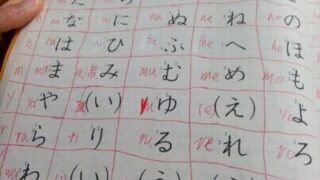 na な ni に nu ぬ ne ね no の
は hi ひ ふ he へ ho ほ
ma ま み mu む me め mo も
y ya や (い) yu ゆ (え) yo よ
ra ら ri り ru る re れ ろ
わ (い) (う) (え)